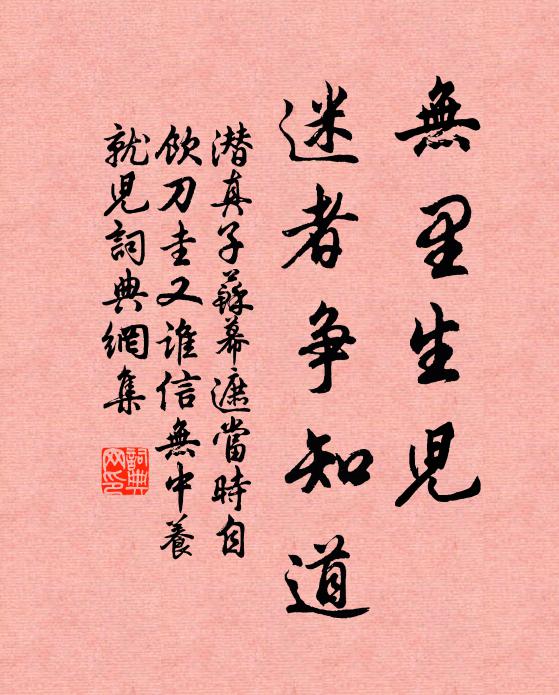 無里生兒
迷者争知道
潜真子蘇幕遮當時自
飲刀圭又誰信無中養
就兒詞典網集
詞典网印